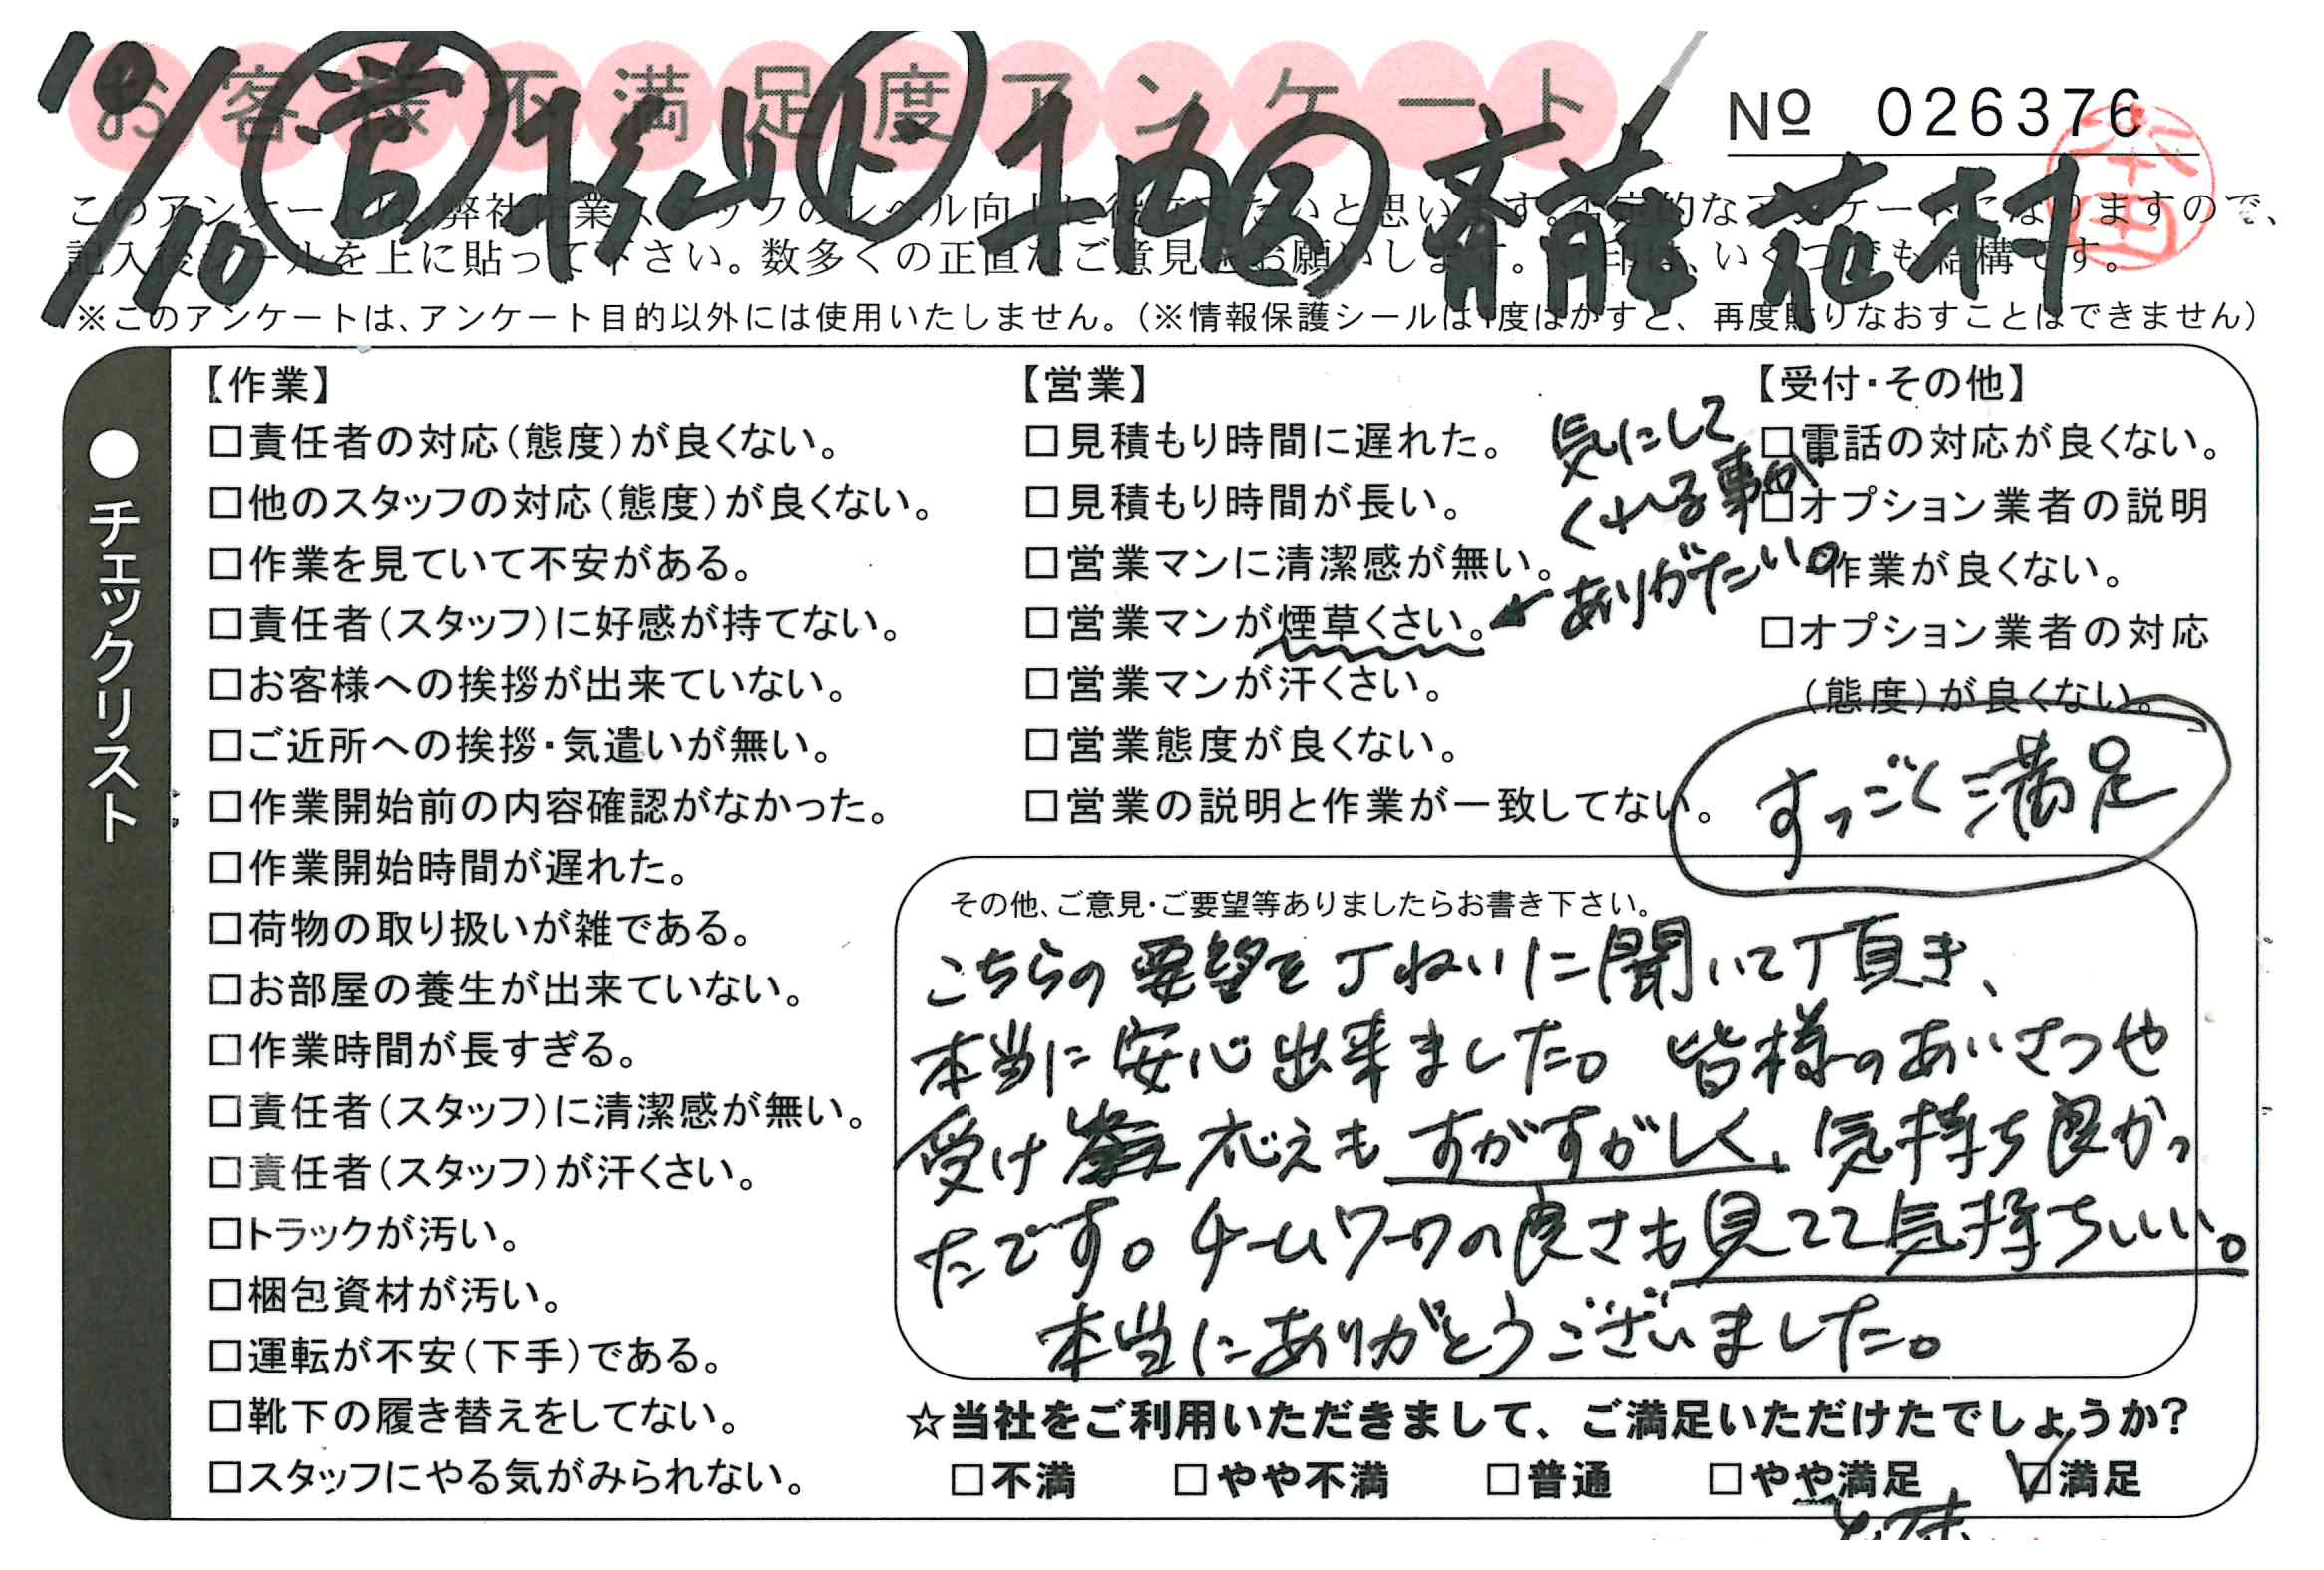 10/10 営 杉山 ト 千西 斉藤 花村
お客様不満足度アンケート
№ 026376
本田
このアンケートは、弊社作業スタッフのレベル向上に役立てたいと思います。否定的なアンケートになりますので、
記入後シールを上に貼って下さい。数多くの正直なご意見をお願いします。 いくつでも結構です。
※このアンケートは、アンケート目的以外には使用いたしません。（※情報保護シールは1度はがすと、再度貼りなおすことはできません）
●チェックリスト
【作業】
□責任者の対応（態度）が良くない。
□他のスタッフの対応（態度）が良くない。
□作業を見ていて不安がある。
□責任者（スタッフ）に好感が持てない。
□お客様への挨拶が出来ていない。
□ご近所への挨拶・気遣いが無い。
□作業開始前の内容確認がなかった。
□作業開始時間が遅れた。
□荷物の取り扱いが雑である。
□お部屋の養生が出来ていない。
□作業時間が長すぎる。
□責任者（スタッフ）に清潔感が無い。
□責任者（スタッフ）が汗くさい。
□トラックが汚い。
□梱包資材が汚い。
□運転が不安（下手）である。
□靴下の履き替えをしてない。
□スタッフにやる気がみられない。
【営業】
□見積もり時間に遅れた。
□見積もり時間が長い。
□営業マンに清潔感が無い。
□営業マンが煙草くさい。
□営業マンが汗くさい。
□営業態度が良くない。
□営業の説明と作業が一致してない。
気にして
くれる事が
ありがたい。
【受付・その他】
□電話の対応が良くない。
□オプション業者の説明
作業が良くない。
□オプション業者の対応
（態度）が良くない。
すっごく満足
その他、ご意見・ご要望等ありましたらお書き下さい。
こちらの要望を丁ねいに聞いて頂き、
本当に安心出来ました。皆様のあいさつや
受け応えもすがすがしく、気持ち良かっ
たです。チームワークの良さも見てて気持ちいい。
本当にありがとうございました。
☆当社をご利用いただきまして、ご満足いただけたでしょうか？
□不満 □やや不満 □普通 □やや満足 ☑満足